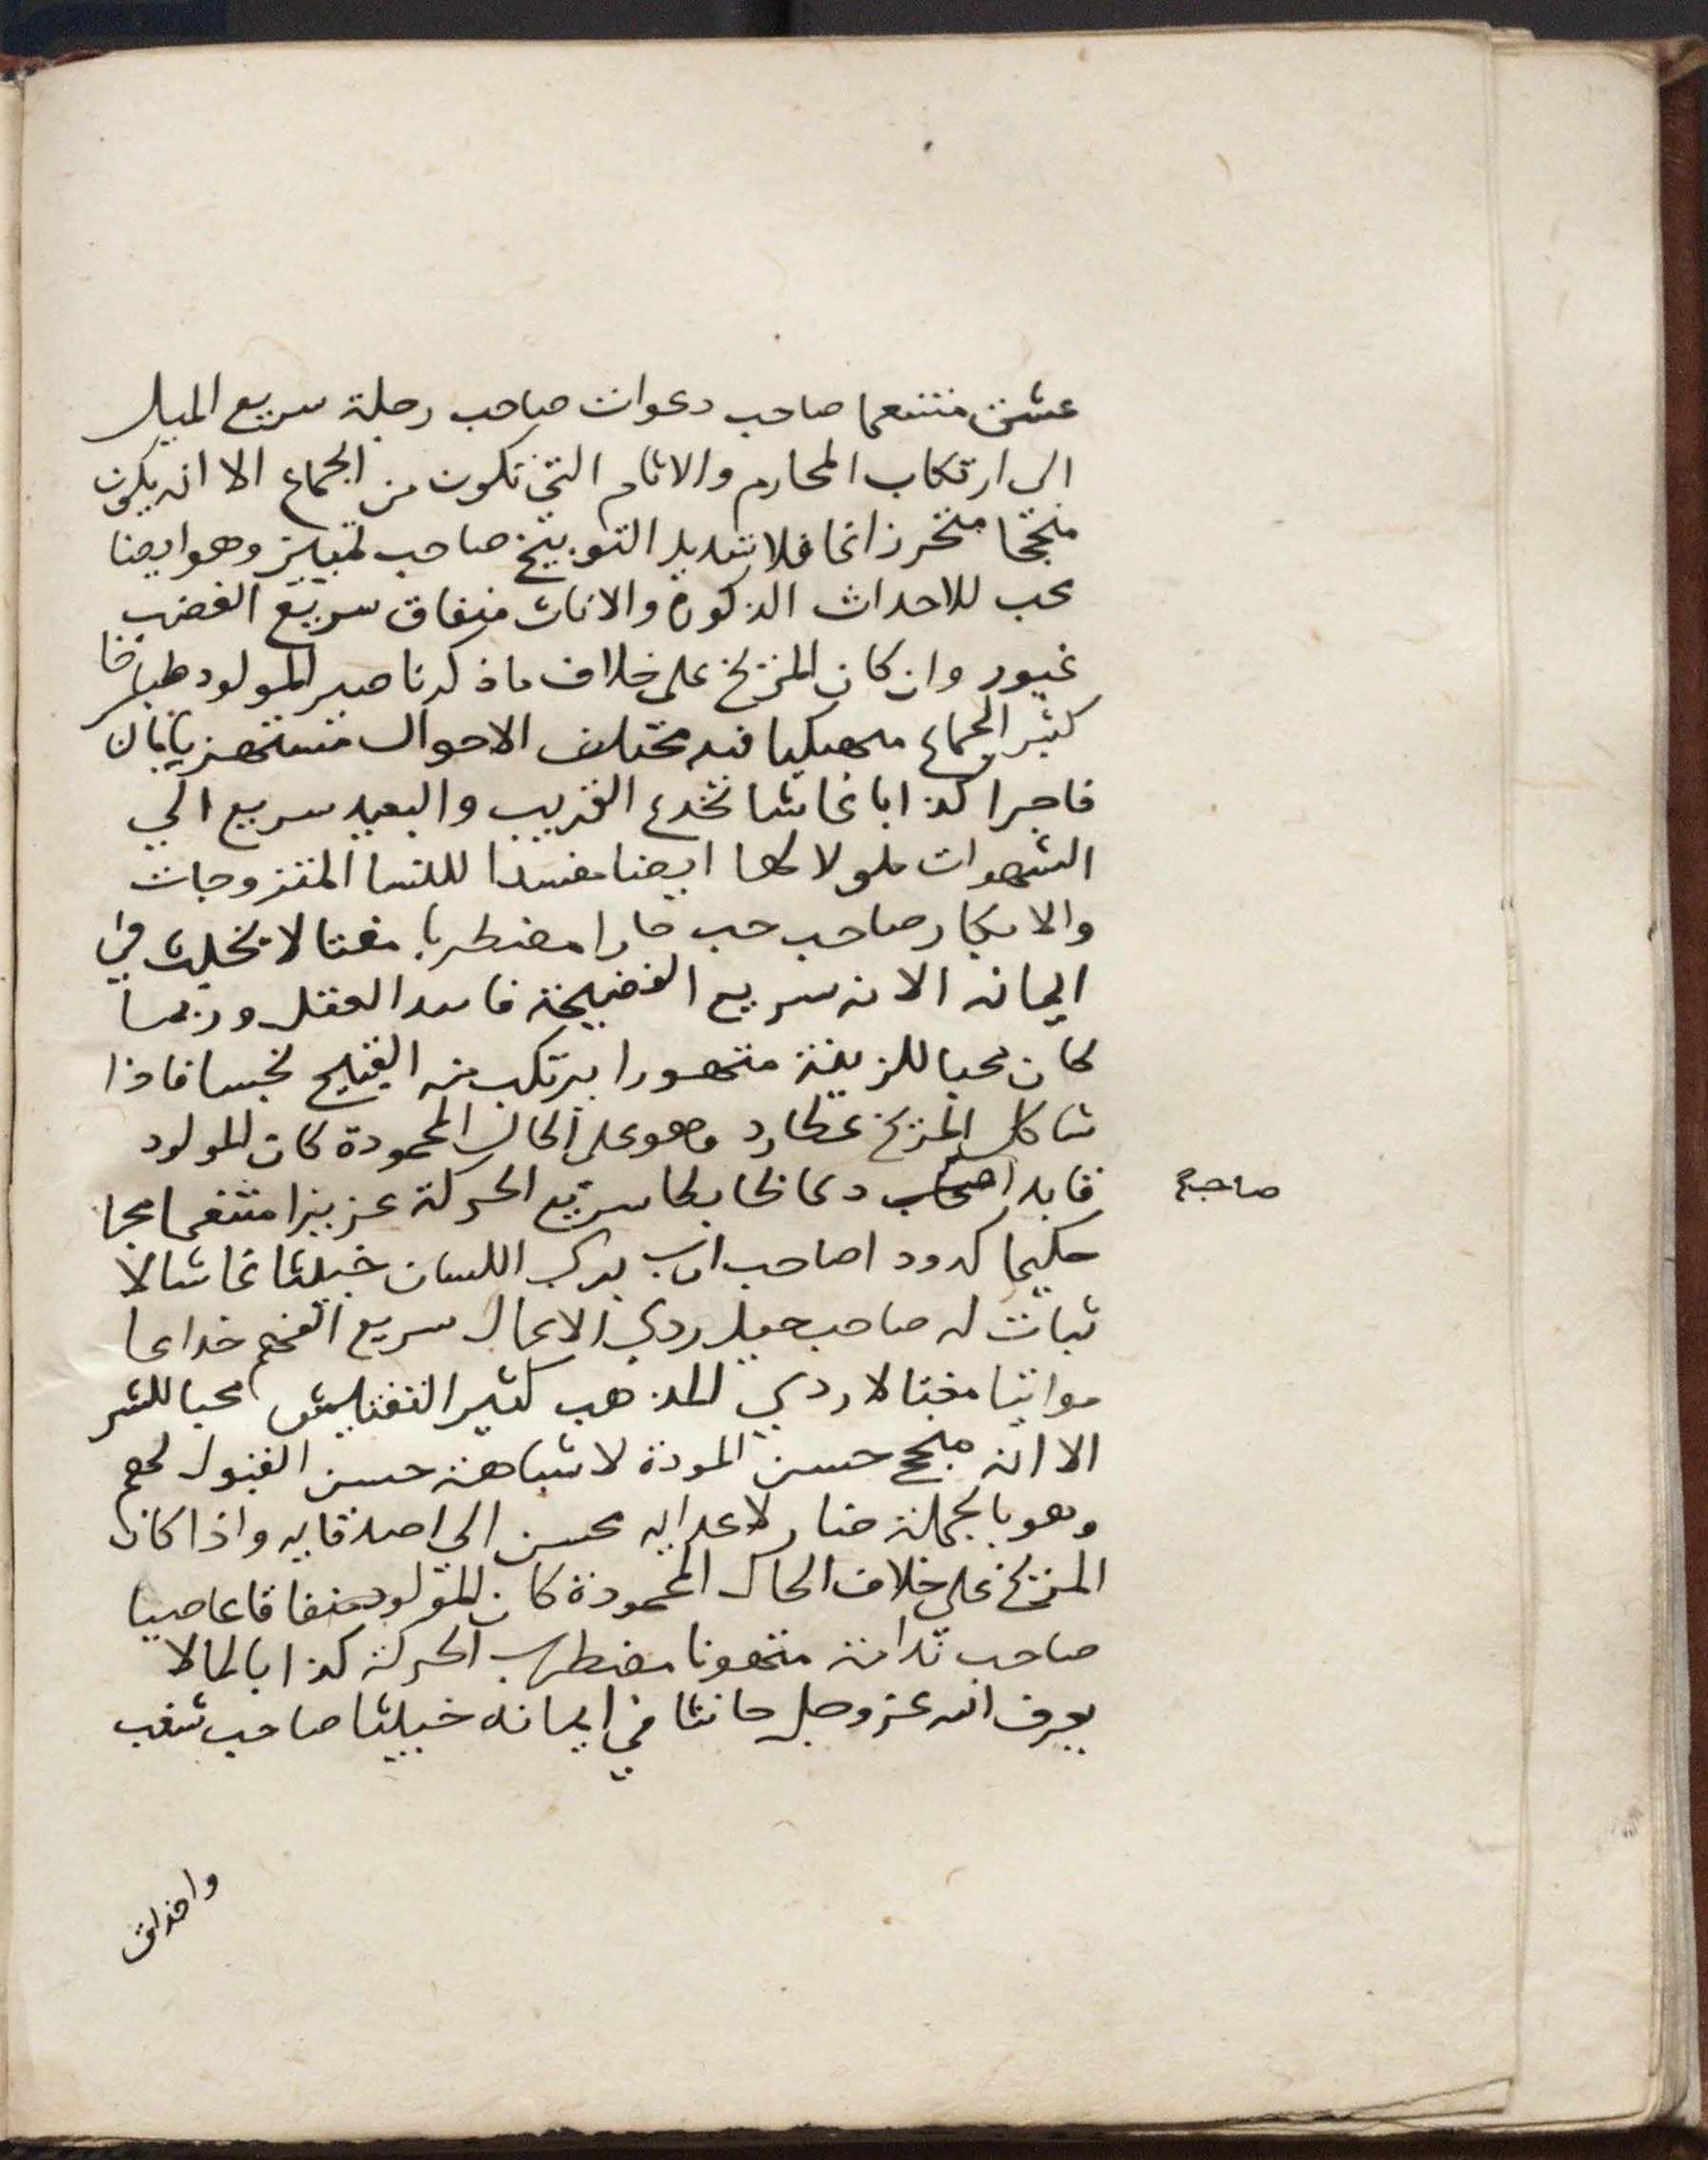 عشق متنعما صاحب دعوات صاحب رجلة سريع الميل
الى ارتكاب المحارم والاثام التي تكون من الجماع الا انه يكون
منجحا متحرزا شديد التوبيخ صاحب تمييز وهو ايضا
محب للاحداث الذكورة والاناث منفاق سريع الغضب
غيور وان كان المريخ على خلاف ما ذكرنا صير المولود
كثير الجماع فيه مختلف الاحوال
فاجرا كذابا غاشا يخدع القريب والبعيد سريع الي
الشهوات ملولا لها ايضا مفسدا للنسا المتزوجات
والابكار صاحب حب حارا مضطربا مغتالا يحلث في
ايمانه الا انه سريع الفضيحة فاسد العقل وربما
كان محبا للزينة متهورا يرتكب منه القبيح نجسا فاذا
شاكل المريخ عطارد وهو على الحال المحمودة كان المولود
قايدا دعاظا بطا سريع الحركة عزيزا متنعما
صاحب
حكيما كدودا صاحب ادب يدرك اللسان خبيثا غاشا لا
ثبات له صاحب حيل ردي الاعمال سريع الفهم خداعا
مواتيا مغتالا ردي المذهب كثير التفتيش محبا للشر
الا انه منجح حسن المودة لاشباهه حسن القبول لهم
وهو بالجملة ضار لاعدايه محسن الي اصدقايه واذا كان
المريخ على خلاف الحال المحمودة كان المولود منفاقا عاصيا
صاحب ندامة متهونا مضطرب الحركة كذابا لا
يعرف الله عز وجل حانثا في ايمانه خبيثا صاحب شغب
واخذ